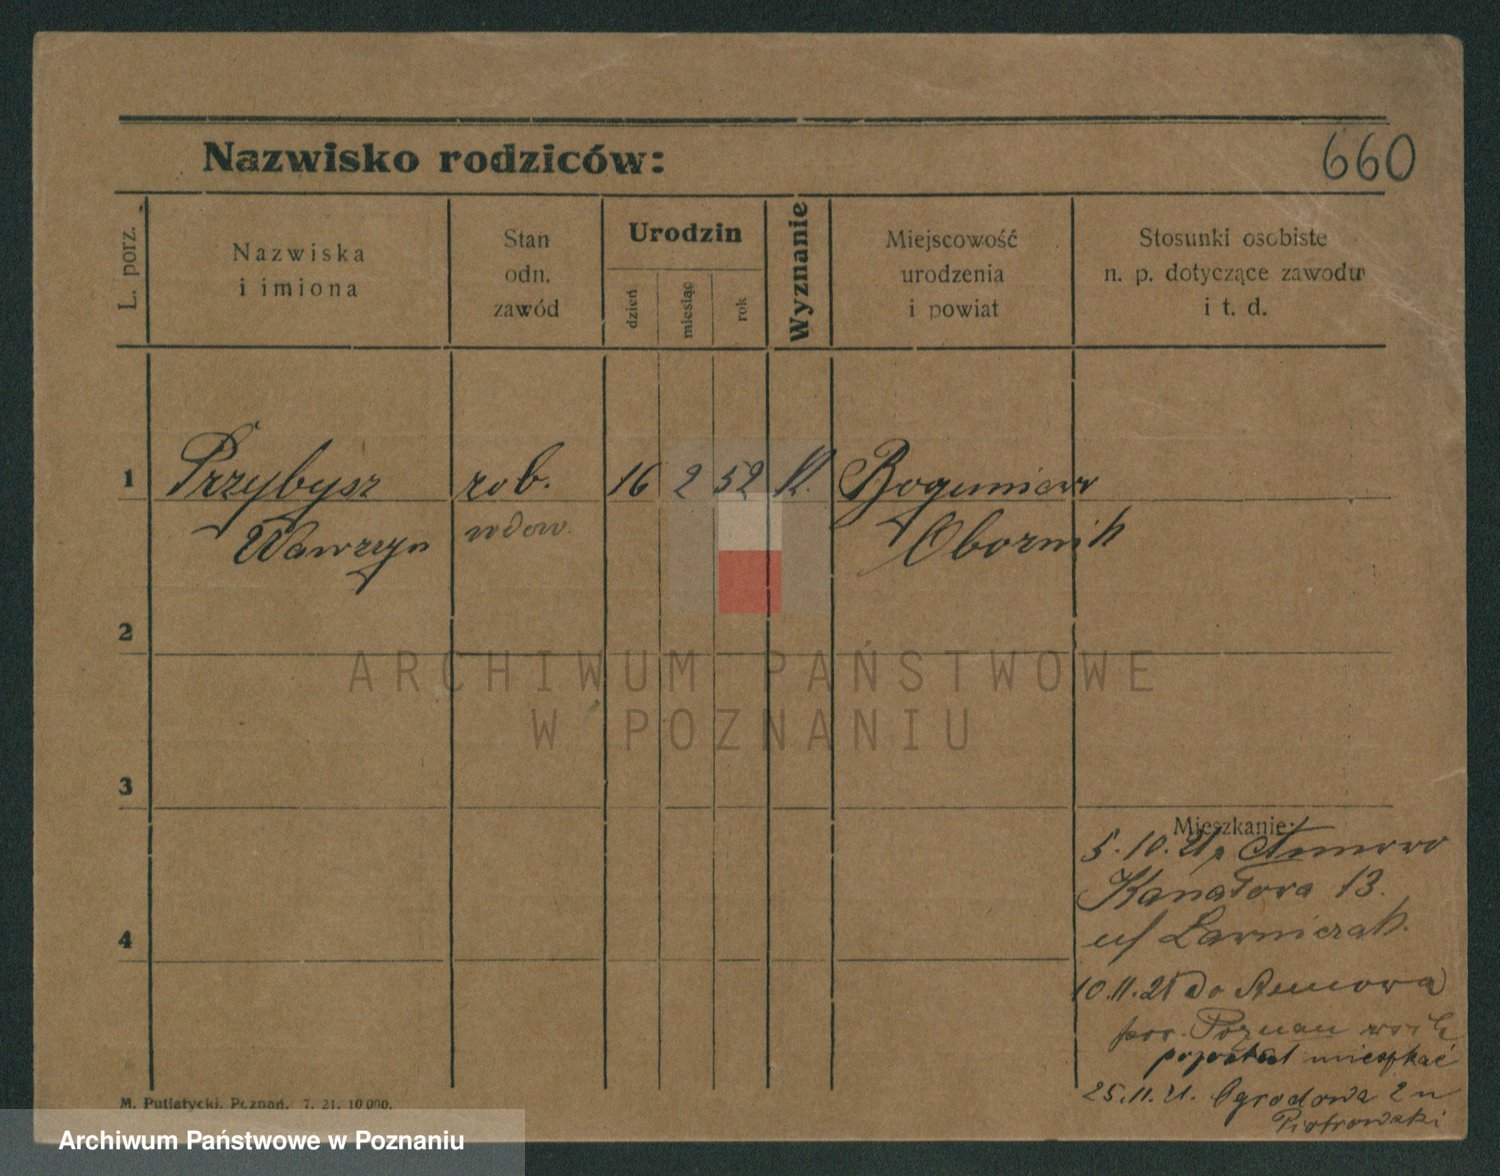 Nazwisko rodziców:
660
L. porz.
Nazwiska
i imiona
Stan
odn.
zawód
Urodzin
dzień
miesiąc
rok
Wyznanie
Miejscowość
urodzenia
i powiat
Stosunki osobiste
n. p. dotyczące zawodu
i t. d.
1 Przybysz rob. 16 2 52 kl. Boguniewo
Wawrzyn wdow. Obornik
2
3
4
Mieszkanie:
5.10.21 z Annowo
Kanałowa 13.
u/ Ławniczak.
10.11.21 do Annowa
pow. Poznań
pozostał mieszkać
25.11.21. Ogrodowa 2 u
Piotrowski
M. Putiatycki, Poznań. 7. 21. 10 000.
ARCHIWUM PAŃSTWOWE
W POZNANIU
Archiwum Państwowe w Poznaniu